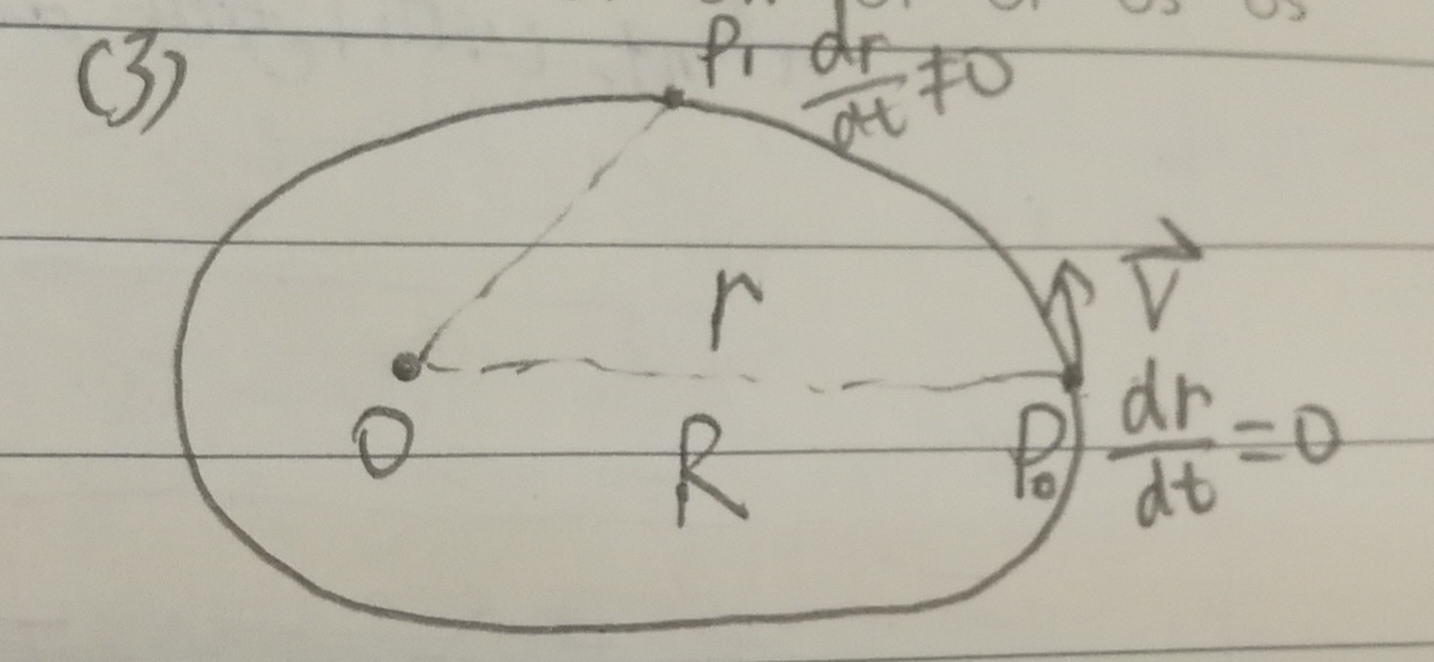 (3)
P₁ dr/dt ≠ 0
r
V⃗
O
R
P₀ dr/dt = 0